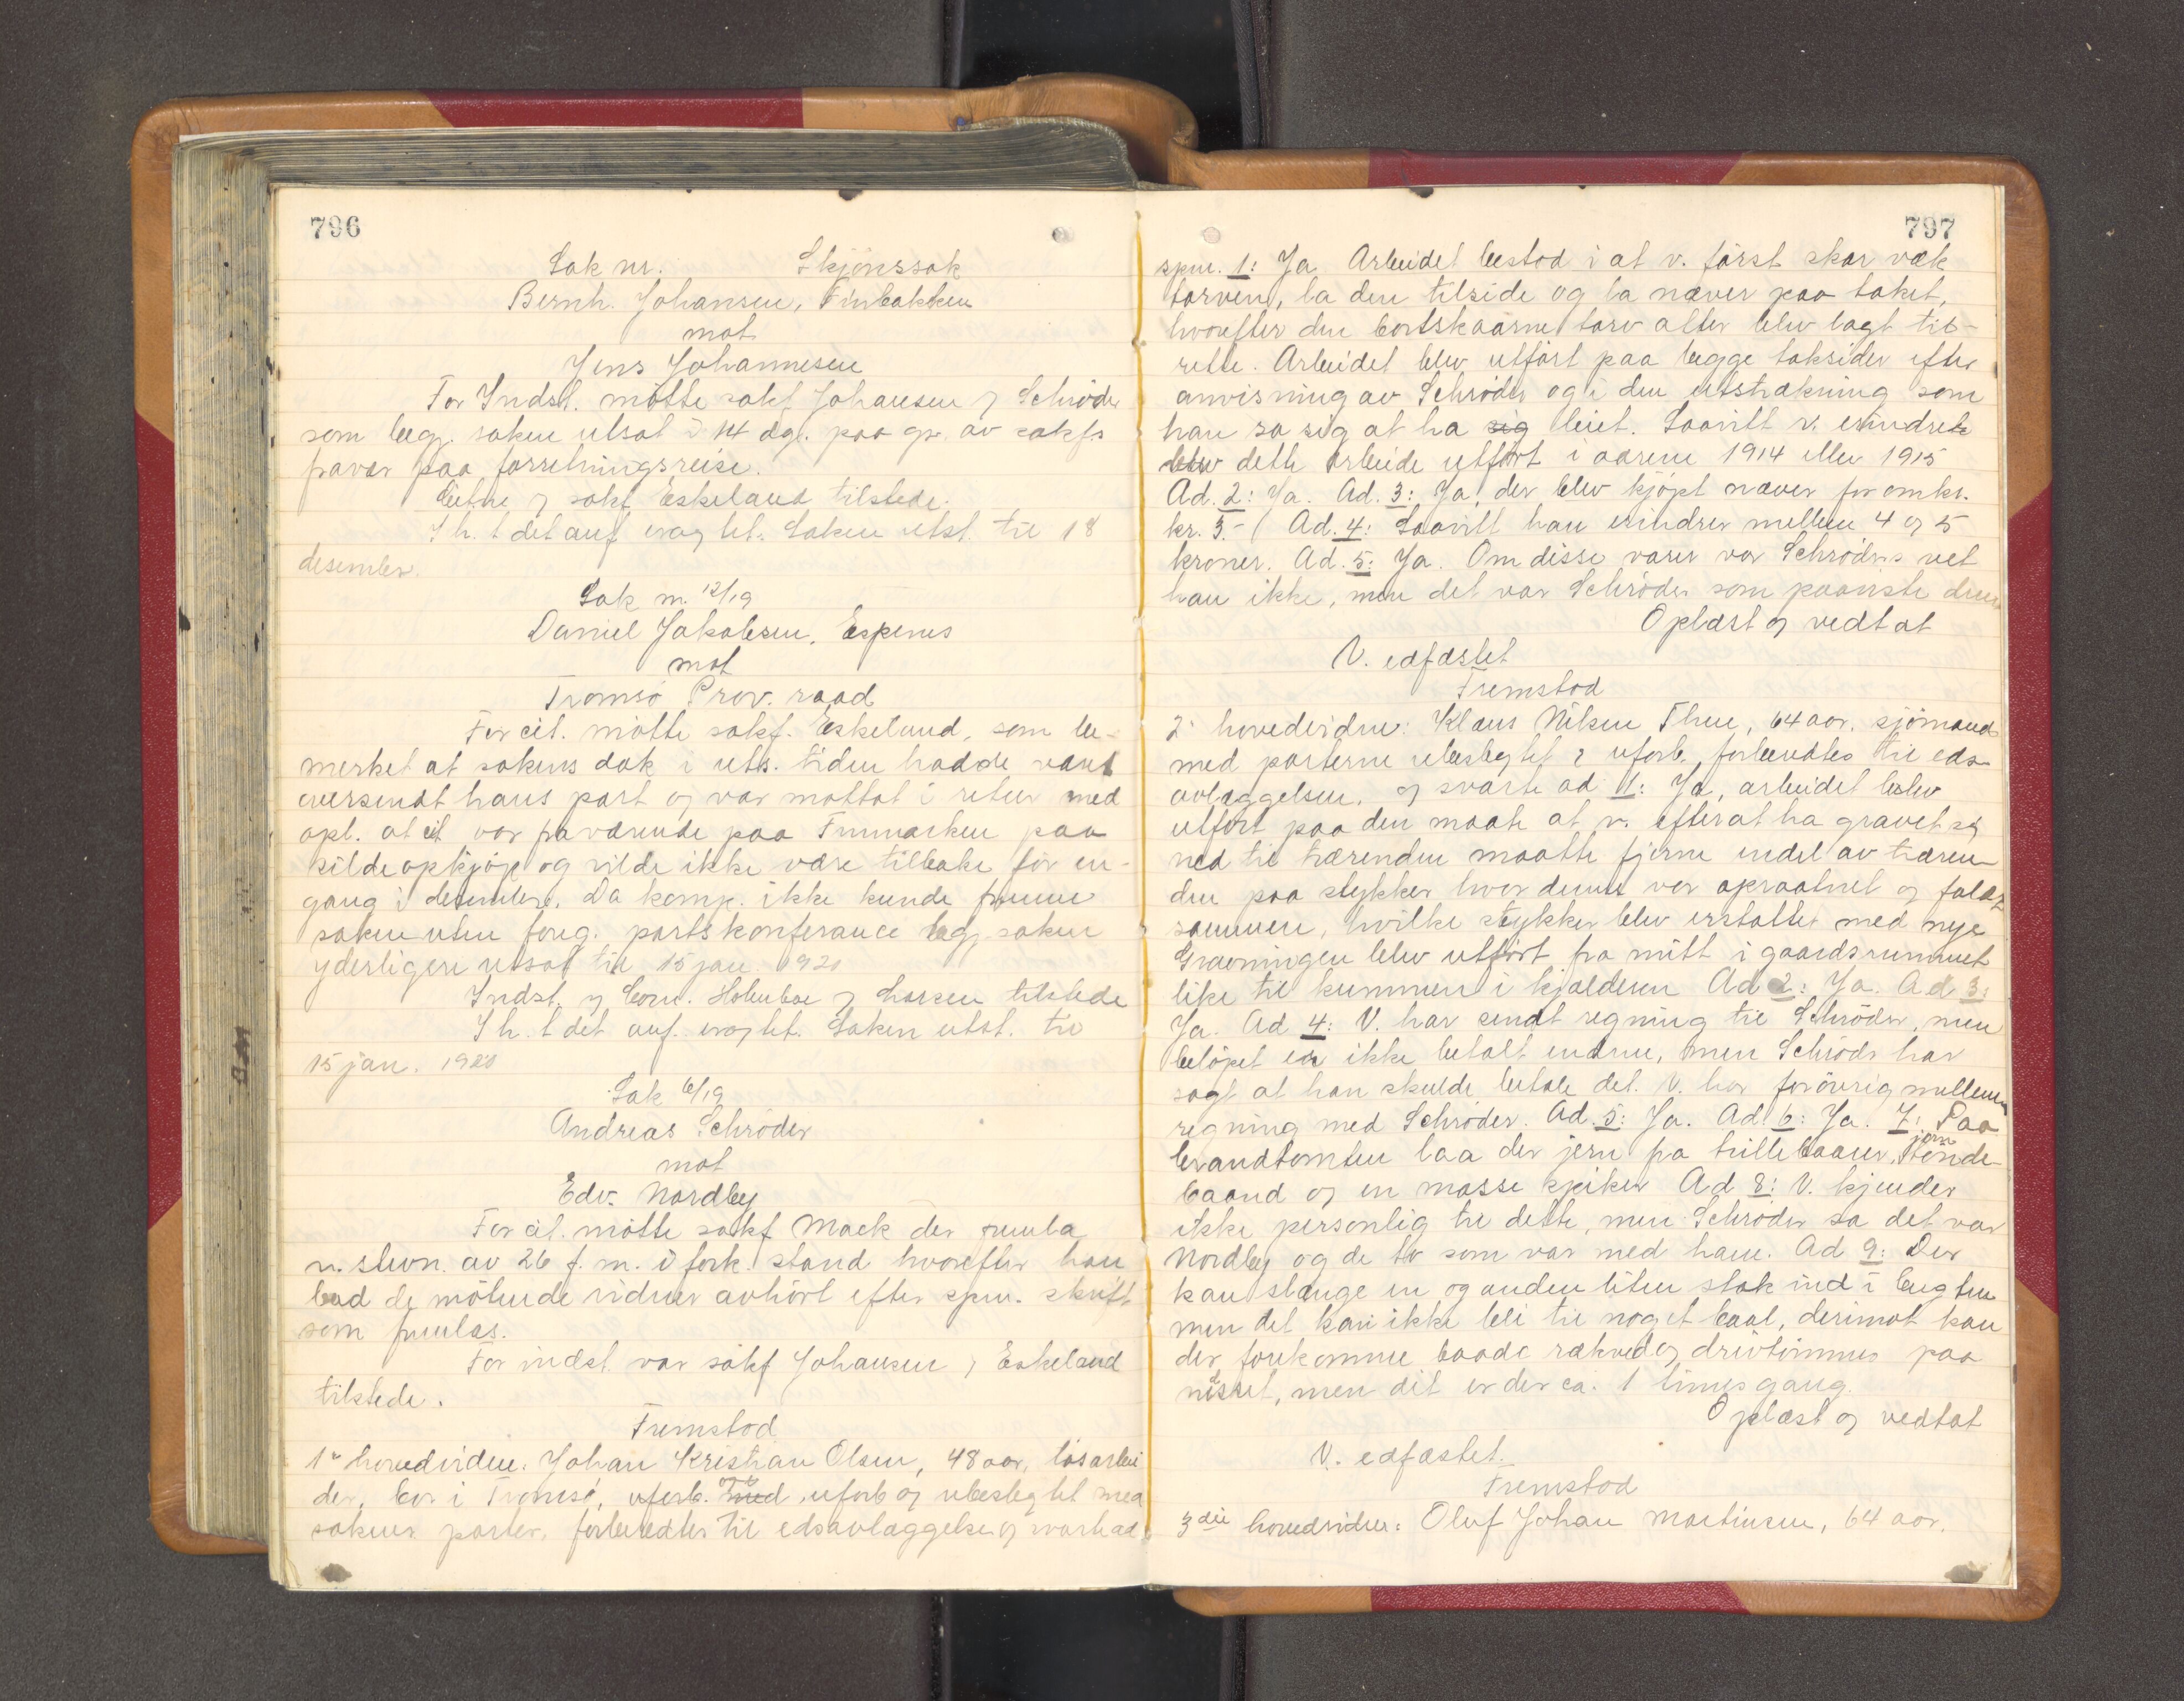 796
Sak nr. Skjönssak
Bernh. Johansen, Finbakken
mot
Jens Johannesen
For Indst. mötte sakf Johansen og Schröder
som begj. saken utsat i 14 dge. paa gr. av sakfs
fravær paa forretningsreise.
Citne og sakf. Eskeland tilstede.
I h. t det anf. eragtet. Saken utst. til 18
desember.
Sak nr. 12/19
Daniel Jakobsen, Espenes
mot
Tromsö Prov. raad
For cit. mötte sakf. Eskeland, som be-
merket at sakens dok i uts. tiden hadde vært
oversendt hans part og var mottat i retur med
opl. at cit var fraværende paa Finmarken paa
sildeopkjöp og vilde ikke være tilbake för en-
gang i desember. Da komp. ikke kunde fremme
saken uten foreg. partskonferance begj. saken
yderligere utsat til 15 jan. 1920
Indst. og Corn. Holmboe og Larsen tilstede
I h. t det anf. eragtet. Saken utst. til
15 jan. 1920
Sak 6/19
Andreas Schröder
mot
Edv. Nordby
For cit. mötte sakf Mack der fremla
n. stevn. av 26 f. m. i fork. stand hvorefter han
bad de mötende vidner avhört efter spm. skrift
som fremlas.
For indst var sakf Johansen, Eskeland
tilstede.
Fremstod
1ste hovedvidne. Johan Kristian Olsen, 48 aar, lösarbei
der, bor i Tromsö, uforb. med uforb og ubeslegtet med
sakens parter, forberedtes til edsavlæggelse og svarte ad
797
spm. 1: Ja Arbeidet bestod i at v. först skar væk
torven, la den tilside og la næver paa taket,
hvorefter den bortskaarne torv atter blev lagt til-
rette. Arbeidet blev utfört paa begge taksider efter
anvisning av Schröder og i den utstrækning som
han sa sig at ha sig leiet. Saavitt v. erindrets
blev dette arbeide utfört i aarene 1914 eller 1915
Ad. 2: Ja. Ad. 3: Ja, der blev kjöpt næver for omkr.
kr. 3.- Ad. 4: Saavitt han erindrer mellem 4 og 5
kroner. Ad. 5: Ja. Om disse varer var Schröders vet
han ikke, men det var Schröder som paaviste dem
Oplæst og vedtat
V. edfæstet
Fremstod
2. hovedvidne: Klaus Nilsen Thue, 64 aar, sjömand
med parterne ubeslegtet & uforb, forberedtes til eds-
avlæggelsen, og svarte ad 1: Ja, arbeidet blev
utfört paa den maate at v. efterat ha gravet sig
ned til trærenden maatte fjerne endel av træren-
den paa stykker hvor denne var opraatnet og faldt
sammen, hvilke stykker blev erstattet med nye
Gravningen blev utfört fra midt i gaardsrummet
like til kummen i kjælderen Ad 2: Ja. Ad 3:
Ja. Ad 4: V. har sendt regning til Schröder, men
belöpet er ikke betalt endnu, men Schröder har
sagt at han skulde betale det. V. har forövrig mellem
regning med Schröder. Ad. 5: Ja. Ad. 6: Ja. 7: Paa
brandtomten laa der jern fra trillebaarer, jern tönde-
baand og en masse spiker Ad 8: V. kjender
ikke personlig til dette, men Schröder sa det var
Nordby og de to som var med ham. Ad 9: Der
kan slænge en og anden liten stok ind i bugten
men det kan ikke bli til noget baal, derimot kan
der forekomme baade rækved og drivtömmer paa
nesset, men dit er der ca. 1 times gang.
Oplæst og vedtat
V. edfæstet.
Fremstod
3die hovedvidne: Oluf Johan Martinsen, 64 aar.